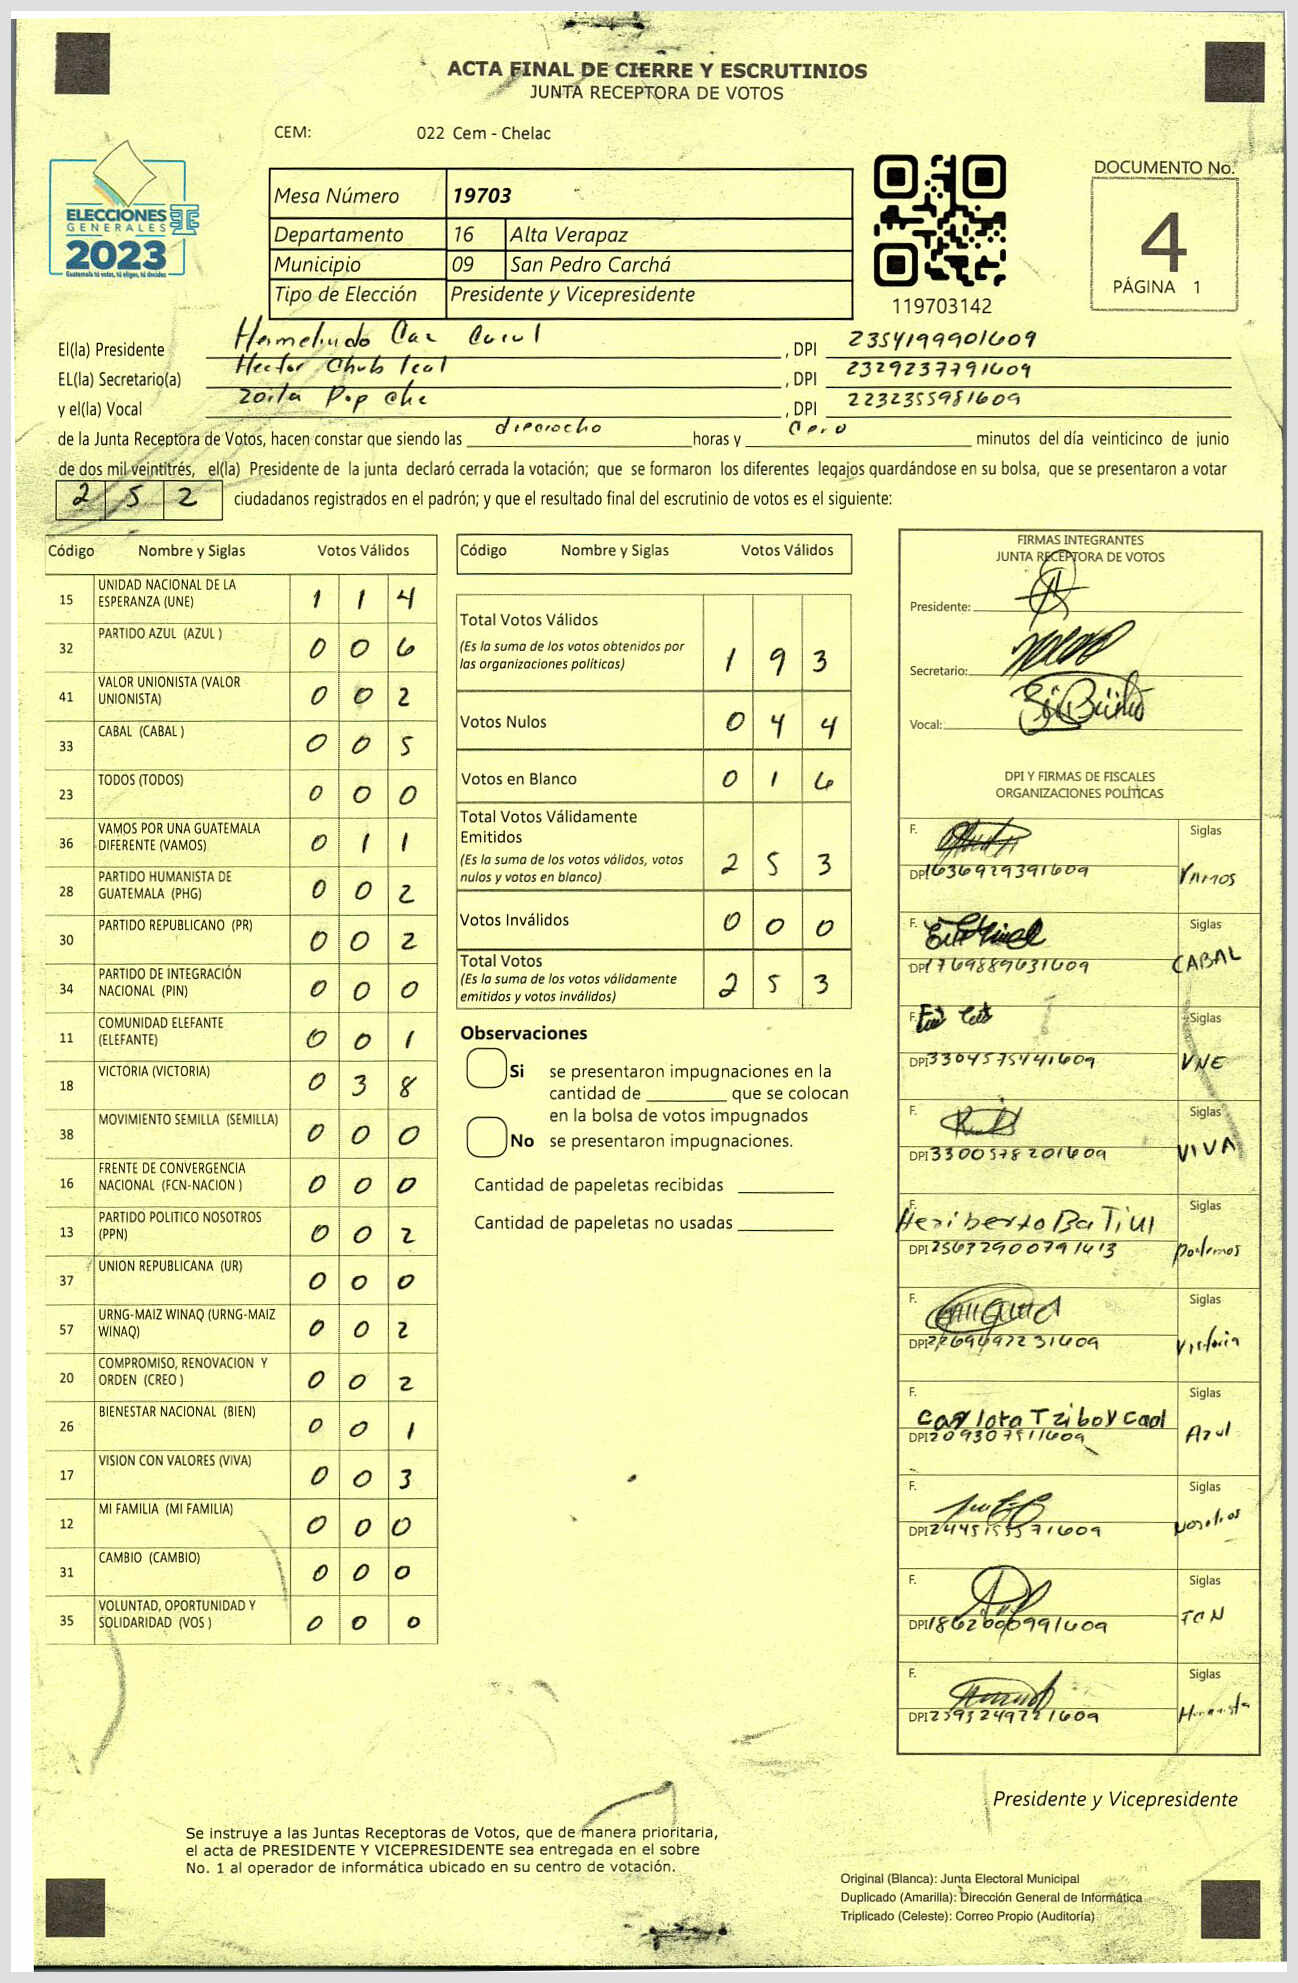 ACTA FINAL DE CIERRE Y ESCRUTINIOS
JUNTA RECEPTORA DE VOTOS
CEM: 022 Cem - Chelac
ELECCIONES
GENERALES
2023
Guatemala tú votas, tú eliges, tú decides
Mesa Número 19703
Departamento 16 Alta Verapaz
Municipio 09 San Pedro Carchá
Tipo de Elección Presidente y Vicepresidente
119703142
DOCUMENTO No.
4
PÁGINA 1
El(la) Presidente Hermelindo Caz Cucul , DPI 2354199901609
EL(la) Secretario(a) Hector Chub Ical , DPI 2329237791609
y el(la) Vocal Zoila Pop Che , DPI 2232355981609
de la Junta Receptora de Votos, hacen constar que siendo las dieciocho horas y cero minutos del día veinticinco de junio
de dos mil veintitrés, el(la) Presidente de la junta declaró cerrada la votación; que se formaron los diferentes legajos guardándose en su bolsa, que se presentaron a votar
2 5 2 ciudadanos registrados en el padrón; y que el resultado final del escrutinio de votos es el siguiente:
Código Nombre y Siglas Votos Válidos
15 UNIDAD NACIONAL DE LA
ESPERANZA (UNE) 1 1 4
32 PARTIDO AZUL (AZUL ) 0 0 6
41 VALOR UNIONISTA (VALOR
UNIONISTA) 0 0 2
33 CABAL (CABAL ) 0 0 5
23 TODOS (TODOS) 0 0 0
36 VAMOS POR UNA GUATEMALA
DIFERENTE (VAMOS) 0 1 1
28 PARTIDO HUMANISTA DE
GUATEMALA (PHG) 0 0 2
30 PARTIDO REPUBLICANO (PR) 0 0 2
34 PARTIDO DE INTEGRACIÓN
NACIONAL (PIN) 0 0 0
11 COMUNIDAD ELEFANTE
(ELEFANTE) 0 0 1
18 VICTORIA (VICTORIA) 0 3 8
38 MOVIMIENTO SEMILLA (SEMILLA) 0 0 0
16 FRENTE DE CONVERGENCIA
NACIONAL (FCN-NACION ) 0 0 0
13 PARTIDO POLITICO NOSOTROS
(PPN) 0 0 2
37 UNION REPUBLICANA (UR) 0 0 0
57 URNG-MAIZ WINAQ (URNG-MAIZ
WINAQ) 0 0 2
20 COMPROMISO, RENOVACION Y
ORDEN (CREO ) 0 0 2
26 BIENESTAR NACIONAL (BIEN) 0 0 1
17 VISION CON VALORES (VIVA) 0 0 3
12 MI FAMILIA (MI FAMILIA) 0 0 0
31 CAMBIO (CAMBIO) 0 0 0
35 VOLUNTAD, OPORTUNIDAD Y
SOLIDARIDAD (VOS ) 0 0 0
Código Nombre y Siglas Votos Válidos
Total Votos Válidos
(Es la suma de los votos obtenidos por
las organizaciones políticas) 1 9 3
Votos Nulos 0 4 4
Votos en Blanco 0 1 6
Total Votos Válidamente
Emitidos
(Es la suma de los votos válidos, votos
nulos y votos en blanco) 2 5 3
Votos Inválidos 0 0 0
Total Votos
(Es la suma de los votos válidamente
emitidos y votos inválidos) 2 5 3
Observaciones
Si se presentaron impugnaciones en la
cantidad de ________ que se colocan
en la bolsa de votos impugnados
No se presentaron impugnaciones.
Cantidad de papeletas recibidas
Cantidad de papeletas no usadas
FIRMAS INTEGRANTES
JUNTA RECEPTORA DE VOTOS
Presidente:
Secretario:
Vocal:
DPI Y FIRMAS DE FISCALES
ORGANIZACIONES POLÍTICAS
F. Siglas
DPI 1636929391609 VAMOS
F. Siglas
DPI 1769889631609 CABAL
F. Siglas
DPI 3304575441609 UNE
F. Siglas
DPI 3300578201609 VIVA
F. Heriberto Ba Tiul Siglas
DPI 25632900791413 podemos
F. Siglas
DPI Victoria
F. Carlota Tziboy Caal Siglas
DPI Azul
F. Siglas
DPI Nosotros
F. Siglas
DPI FCN
F. Siglas
DPI Humanista
Presidente y Vicepresidente
Se instruye a las Juntas Receptoras de Votos, que de manera prioritaria,
el acta de PRESIDENTE Y VICEPRESIDENTE sea entregada en el sobre
No. 1 al operador de informática ubicado en su centro de votación.
Original (Blanca): Junta Electoral Municipal
Duplicado (Amarilla): Dirección General de Informática
Triplicado (Celeste): Correo Propio (Auditoría)